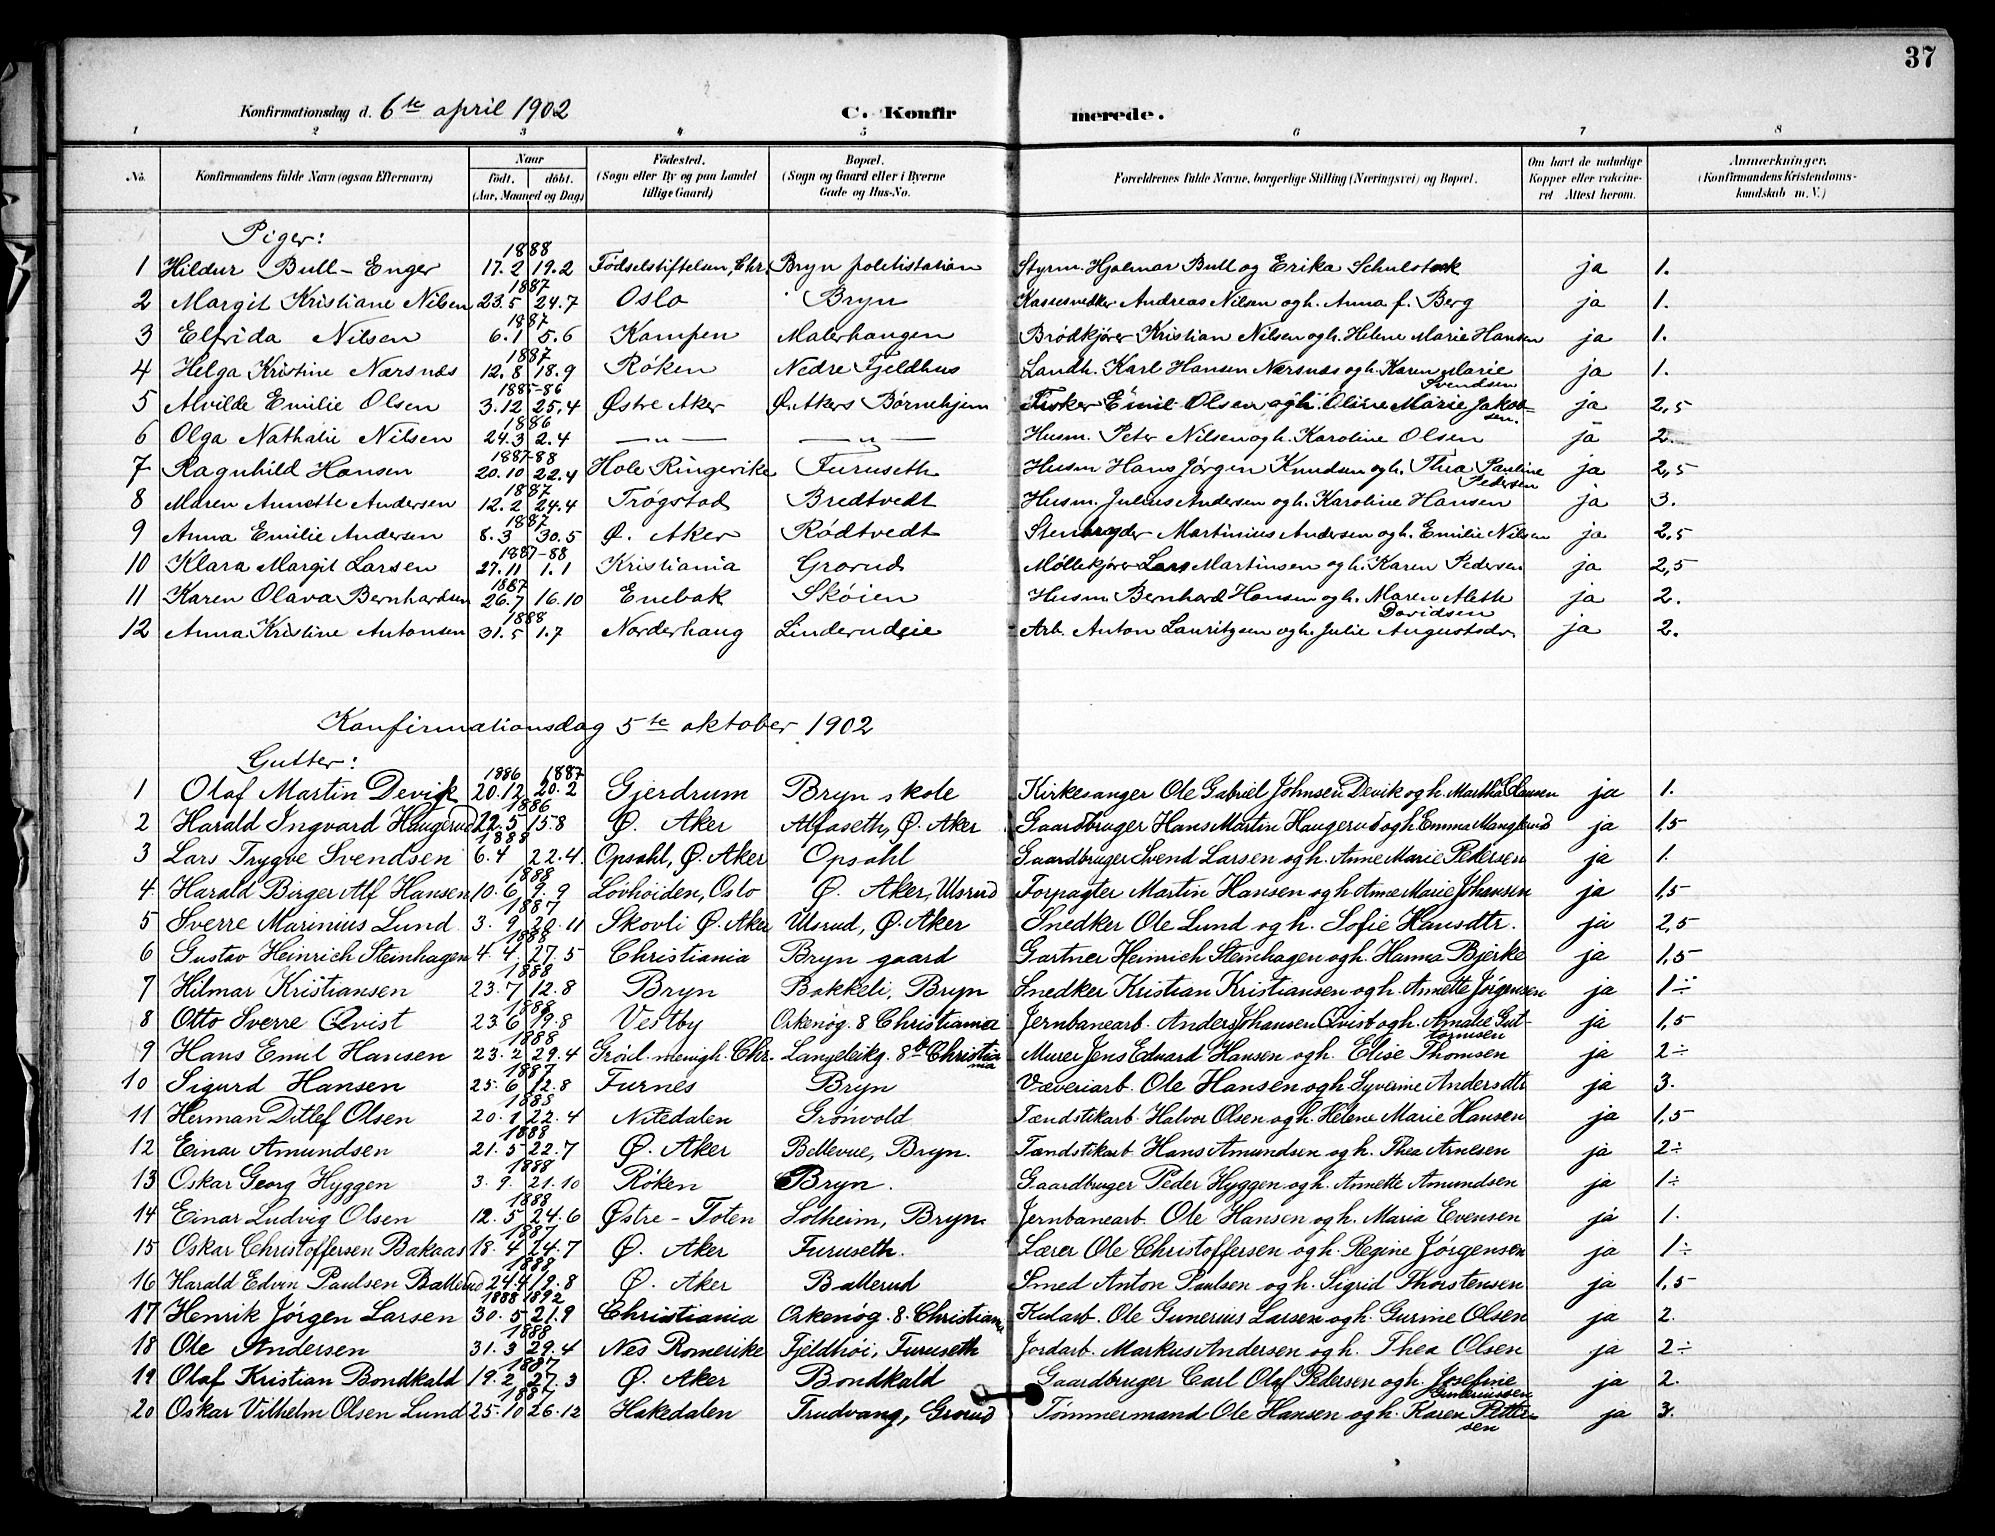 37
Konfirmationsdag d. 6te april 1902 C. Konfirmerede.
1 2 3 4 5 6 7 8
No. Konfirmandens fulde Navn (ogsaa Efternavn) Naar født. døbt. (Aar, Maaned og Dag) Fødested. (Sogn eller By og paa Landet tillige Gaard) Bopæl. (Sogn og Gaard eller i Byerne Gade og Hus-No. Forældrenes fulde Navne, borgerlige Stilling (Næringsvei) og Bopæl. Om havt de naturlige Kopper eller vakcineret Attest herom. Anmærkninger. (Konfirmandens Kristendomskundskab m. V.)
Piger:
1 Hildur Bull-Enger 1888 17.2 19.2 Fødselstiftelsen, Chr. Bryn politistation Styrm. Hjalmar Bull og Erika Schulstock ja 1.
2 Margit Kristiane Nilsen 1887 23.5 24.7 Oslo Bryn Andreas Nilsen og h. Anna f. Berg ja 1.
3 Elfrida Nilsen 1887 6.1 5.6 Kampen Malerhaugen Brødkjører Kristian Nilsen og h. Helene Marie Hansen ja 1.
4 Helga Kristine Nærsnæs 1887 12.8 18.9 Røken Nedre Fjeldhus Landh. Karl Hansen Nærsnæs og h. Karen Marie Svendsen ja 1.
5 Alvilde Emilie Olsen 1885-86 3.12 25.4 Østre Aker Ø. Akers Børnehjem Fisker Emil Olsen og h. Oline Marie Jakobsen. ja 2,5
6 Olga Nathalie Nilsen 1886 24.3 2.4 —„— —„— Husm. Peter Nilsen og h. Karoline Olsen ja 2.
7 Ragnhild Hansen 1887-88 20.10 22.4 Hole Ringerike Furuseth Husm Hans Jørgen Knudsen og h. Thea Pauline Pedersen ja 2,5
8 Maren Annette Andersen 1887 12.2 24.4 Trøgstad Bredtvedt Husm. Julius Andersen og h. Karoline Hansen ja 3.
9 Anna Emilie Andersen 1887 8.3 30.5 Ø. Aker Rødtvedt Stenbryder Martinius Andersen og h. Emilie Nilsen ja 2,5
10 Klara Margit Larsen 1887-88 27.11 1.1 Kristiania Grorud Møllekjører Lars Martinsen og h. Karen Pedersen ja 2,5
11 Karen Olava Bernhardsen 1887 26.7 16.10 Enebak Skøien Husm. Bernhard Hansen og h. Maren Aleth Davidsen ja 2.
12 Anna Kristine Antonsen 1888 31.5 1.7 Norderhaug Linderudeie Arb. Anton Lauritzen og h. Julie Augustsdr ja 2.
Konfirmationsdag 5te oktober 1902
Gutter:
1 Olaf Martin Devik 1886 1887 20.12 20.2 Gjerdrum Bryn skole Kirkesanger Ole Gabriel Johnsen Devik og h. Martha Clausen ja 1.
2 Harald Ingvard Haugerud 1886 22.5 15.8 Ø. Aker Alfaseth, Ø. Aker Gaardbruger Hans Martin Haugerud og h Emma Manglerud ja 1,5
3 Lars Trygve Svendsen 1888 6.4 22.4. Opsahl, Ø. Aker Opsahl Gaardbruger Svend Larsen og h. Anne Marie Pedersen ja 1.
4 Harald Birger Alf Hansen 1888 10.6 9.9 Lovhøiden, Oslo Ø. Aker, Ulsrud Forpagter Martin Hansen og h Anne Marie Johansen ja 1,5
5 Sverre Marinius Lund 1887 3.9 20.11 Skovli Ø. Aker Ulsrud, Ø. Aker Snedker Ole Lund og h. Sofie Hansdtr. ja 2,5
6 Gustav Heinrich Steinhagen 1888 4.4. 27.5 Christiania Bryn gaard Gartner Heinrich Steinhagen og h. Hanna Bjerke ja 1,5
7 Hilmar Kristiansen 1888 23.7 12.8 Bryn Bakkeli, Bryn Snedker Kristian Kristiansen og h. Annette Jørgensen ja 1÷
8 Otto Sverre Qvist 1888 23.6 19.8 Vestby Orkenøg. 8 Christiania Jernbanearb. Anders Johansen Qvist og h. Amalie Guttormsen ja 1,5
9 Hans Emil Hansen 1888 23.2 29.4 Grøul. menigh. Chr. Langleikg. 8b Christiania Murer Jens Edvard Hansen og h. Elise Thomsen ja 2÷
10 Sigurd Hansen 1887 25.6 12.8 Furnes Bryn Væveriarb. Ole Hansen og h. Syverine Andersdtr ja 3.
11 Herman Ditlef Olsen 1888 20.1 22.4 Nitedalen Grønvold Tændstikarb. Halvor Olsen og h. Helene Marie Hansen ja 1,5
12 Einar Amundsen 1888 21.5 22.7 Ø. Aker Bellevue, Bryn. Tændstikarb. Hans Amundsen og h. Thea Arnesen ja 2÷
13 Oskar Georg Hyggen 1888 3.9. 21.10 Røken Bryn. Gaardbruger Peder Hyggen og h. Annette Amundsen ja 1÷
14 Einar Ludvig Olsen 1888 12.5 24.6 Østre-Toten Solheim, Bryn. Jernbanearb. Ole Hansen og h. Maria Evensen ja 1.
15 Oskar Christoffersen Bakaas 1887 18.4 24.7 Ø. Aker Furuseth. Lærer Ole Christoffersen og h. Regine Jørgensen ja 1÷
16 Harald Edvin Paulsen Ballerud 1888 24.4 19.8 Ø. Aker Ballerud Smed Anton Paulsen og h. Sigrid Thorstensen ja 1,5
17 Henrik Jørgen Larsen 1888 1892 30.5 21.9 Christiania Orkenøg. 8. Christiania Kularb. Ole Gunerius Larsen og h. Gurine Olsen ja 2.
18 Ole Andersen 1888 31.3 29.4 Nes Romerike Fjeldhøi, Furuseth Jordarb. Markus Andersen og h. Thea Olsen ja 2÷
19 Olaf Kristian Bondkald 1887 19.2 27.3 Ø. Aker Bondkald Gaardbruger Carl Olaf Pedersen og h. Josefine Gunerussen ja 2.
20 Oskar Vilhelm Olsen Lund 1887 25.10 26.12 Hakedalen Trudvang, Grorud Tømmermand Ole Hansen og h. Karen Pettersen ja 3.